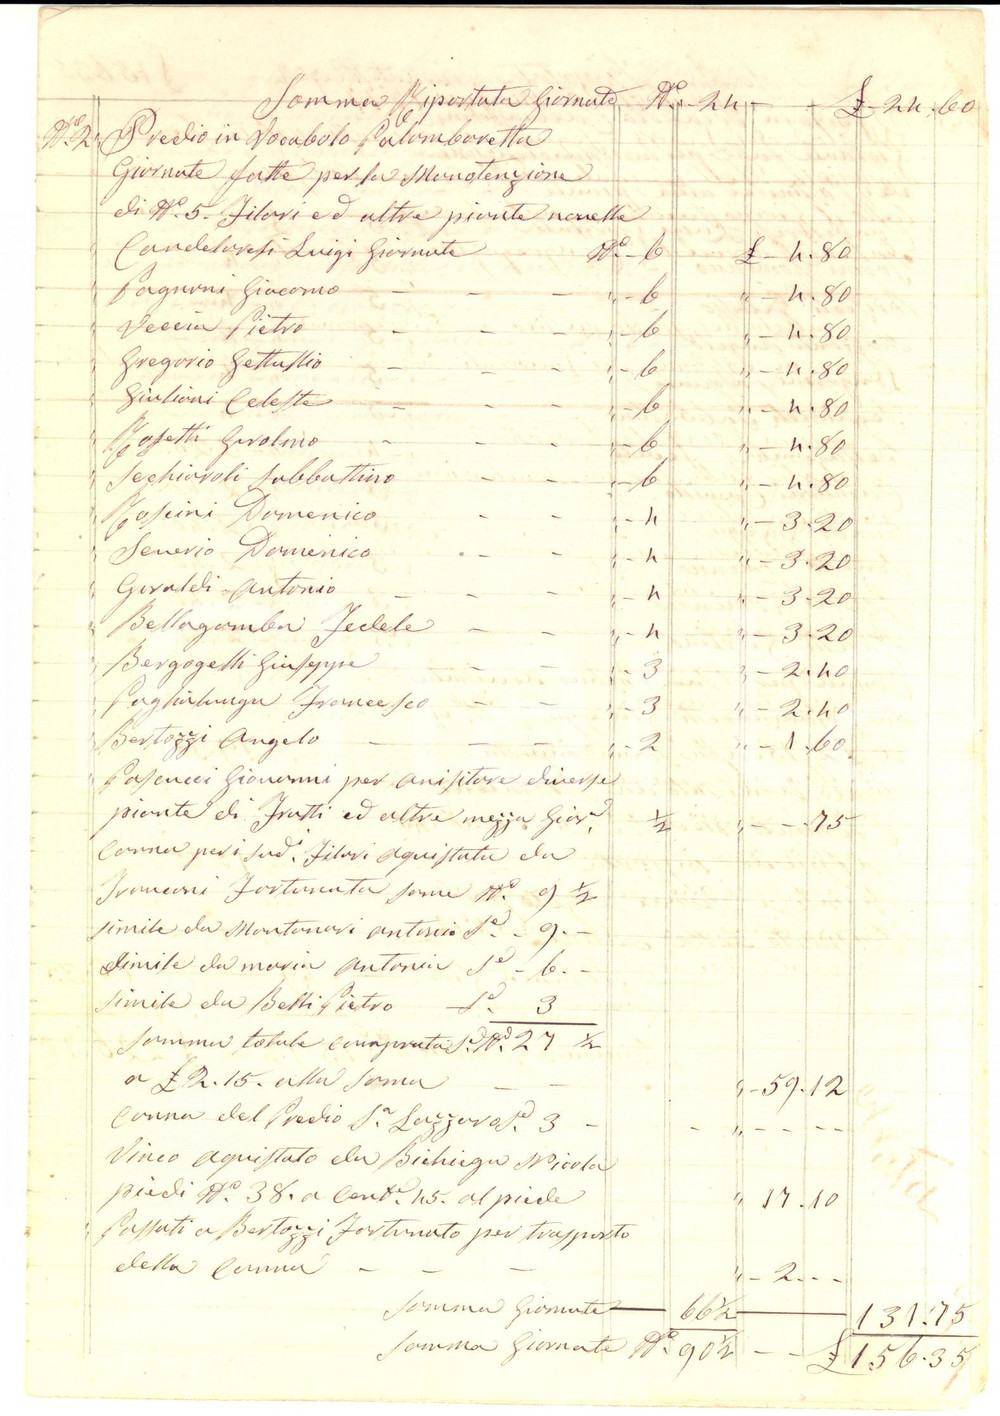 Somma Riportata Giornate N.° 24 - - £ 24.60
N.° 2 Predio in Vocabolo Palomboretta
Giornate fatte per la Manotenzione
di N.° 5. Filari ed altre piante novelle
Candelaresi Luigi Giornate N.° - 6 £ - 4.80
Pagnoni Giacomo - - - " - 6 " - 4.80
Veccia Pietro - - - " - 6 " - 4.80
Gregorio Gettullio - - - " - 6 " - 4.80
Giulioni Celeste - - - " - 6 " - 4.80
Rosetti Girolmo - - - " - 6 " - 4.80
Sechiaroli Sabbattino - - " - 6 " - 4.80
Rossini Domenico - - " - 4 " - 3.20
Severio Domenico - - " - 4 " - 3.20
Giraldi Antonio - - - " - 4 " - 3.20
Bellagamba Fedele - - " - 4 " - 3.20
Bergogelli Giuseppe - - " - 3 " - 2.40
Paglialunga Francesco - - " - 3 " - 2.40
Bertozzi Angelo - - - " - 2 " - 1.60
Pascucci Giovanni per anisitare diverse
piante di Frutti ed altre mezza Gior.ª ½ " - - .75
Canna per i sud.i Filari aquistata da
Franconi Fortunata some N.° 9 ½
simile da Montanari Antonio S.e - 9. -
simile da Maria Antonia S.e - 6. -
simile da Belli Pietro - S.e 3
Somma totale comprata S.e N.° 27 ½
a £ 2.15. alla soma - - " - 59.12
Canna del Predio S.n Lazzaro S.e 3 - - " - - - -
Vinco aquistato da Bichiega Nicola
piedi N.° 38. a Cent.i 45. al piede " 17.10
Passati a Bertozzi Fortunato per trasporto
della Canna - - - " - 2. - -
Somma Giornate 66 ½ 131.75
Somma Giornate N.° 90 ½ - - £ 156.35